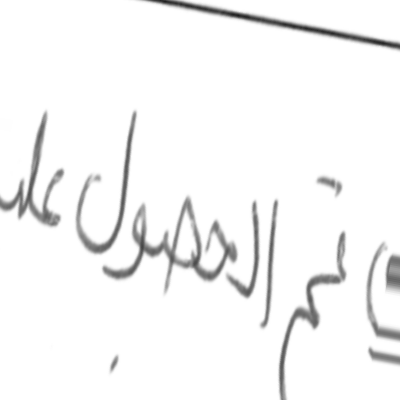 تم الحصول على